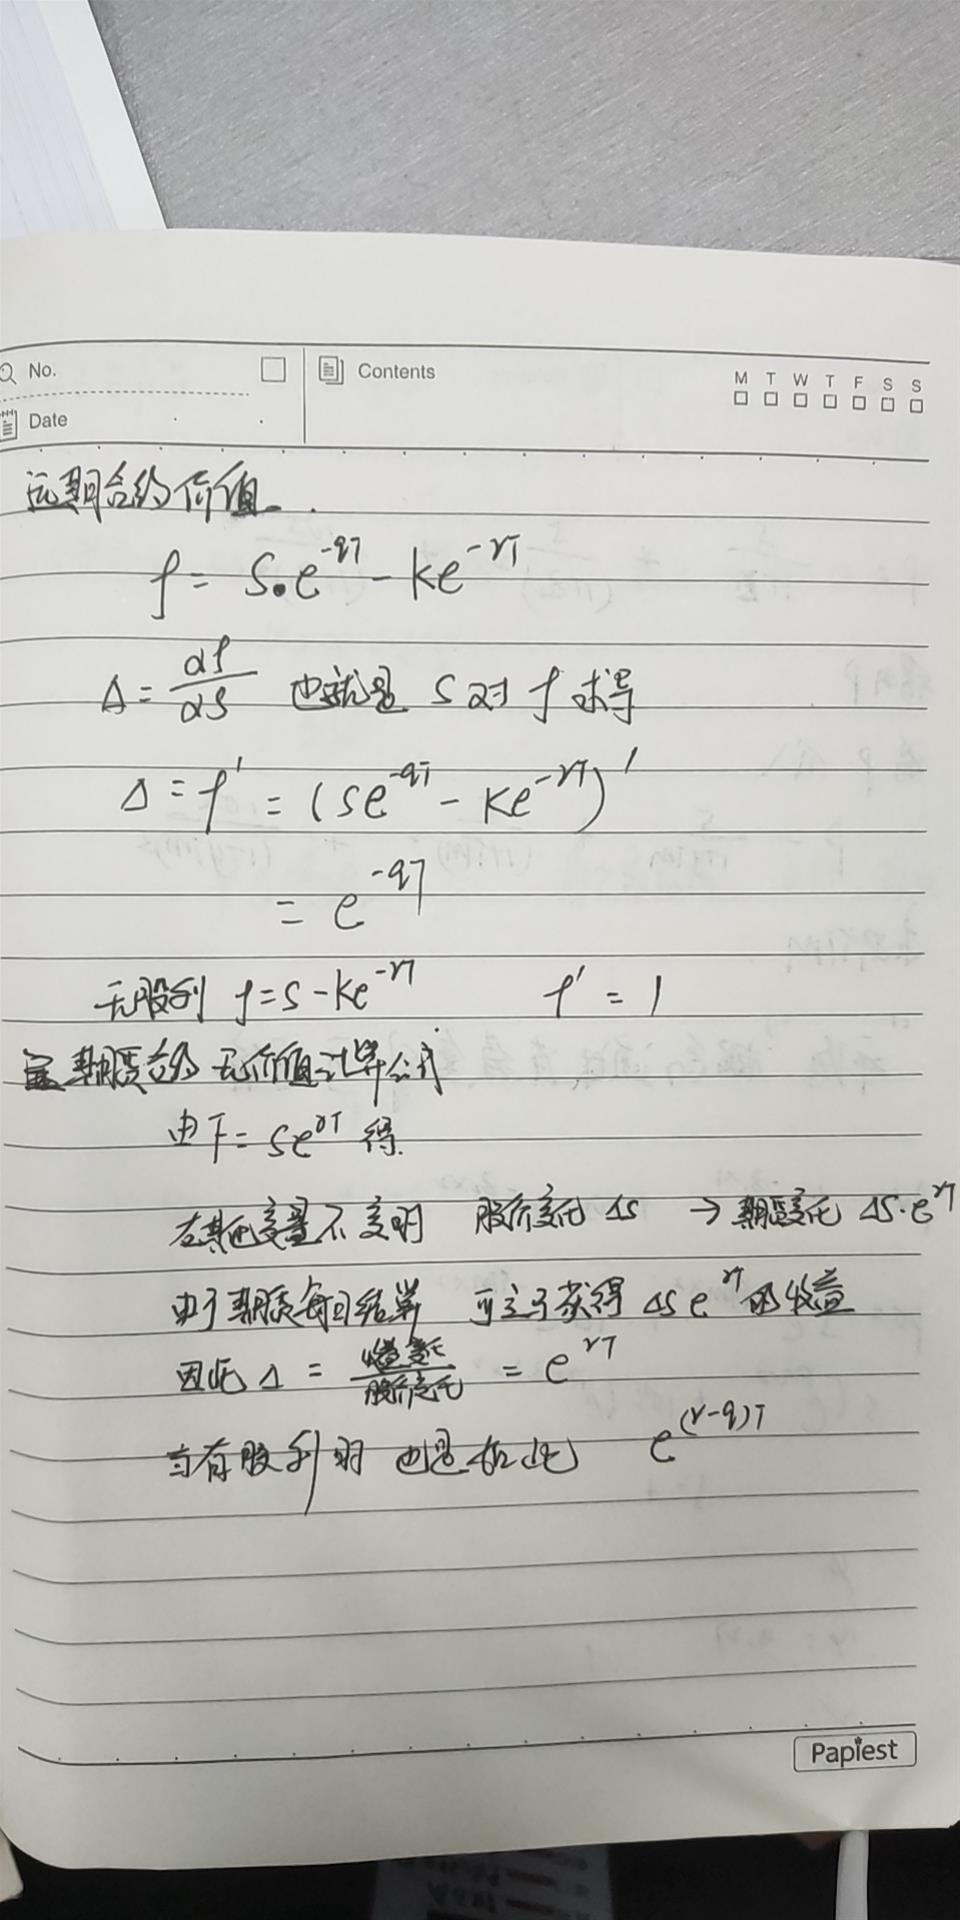 No.
Contents
M T W T F S S
Date
远期合约价值.
f = S₀e^{-qT} - Ke^{-rT}
Δ = αf/αS 也就是 S对 f 求导
Δ = f' = (Se^{-qT} - Ke^{-rT})'
= e^{-qT}
无股利 f = S - Ke^{-rT} f' = 1
期货合约 无价值计算公式
由F = Se^{rT} 得.
在其他变量不变时 股价变化 ΔS → 期货变化 ΔS·e^{rT}
由于期货每日结算 可立予获得 ΔSe^{rT} 的收益
因此 Δ = 收益变化/股价变化 = e^{rT}
当有股利时 也是如此 e^{(r-q)T}
Papiest